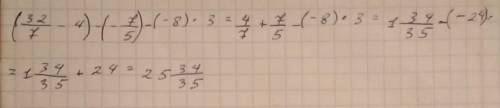 (32/7 - 4) - (-7/5) - (-8) · 3 = 4/7 + 7/5 - (-8) · 3 = 1 34/35 - (-24) =
= 1 34/35 + 24 = 25 34/35